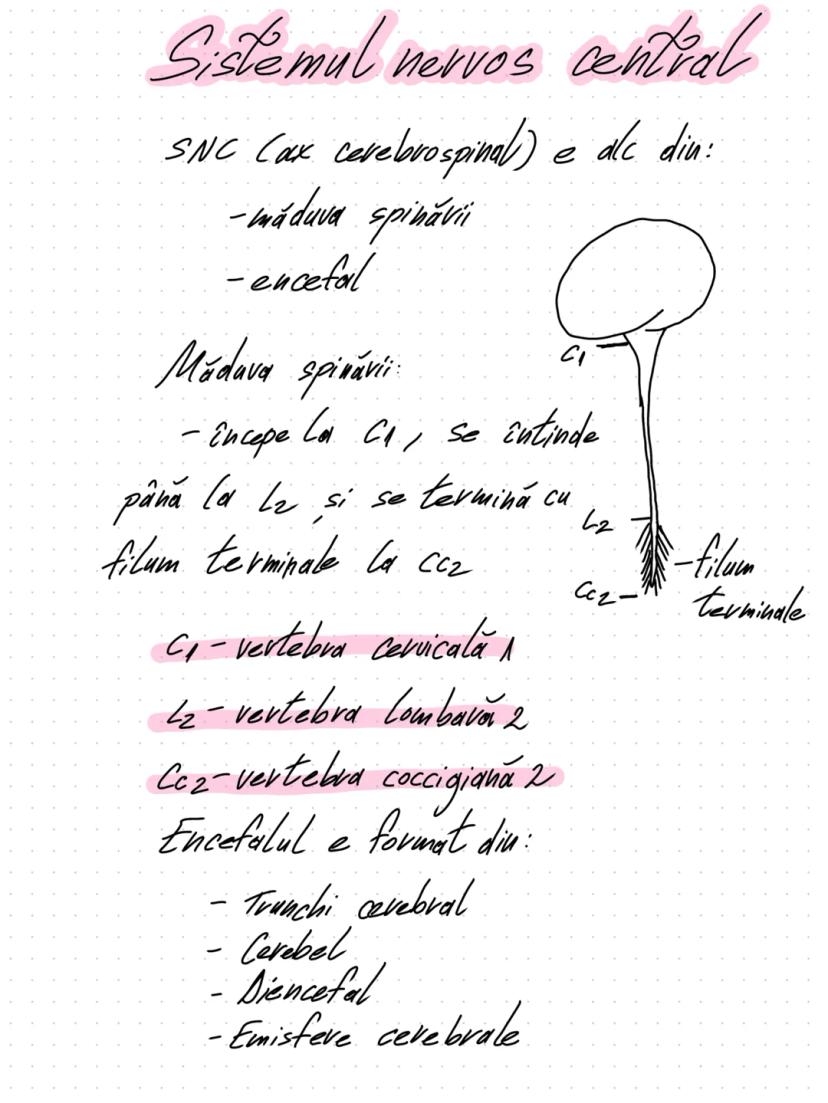 Sistemul nervos central
SNC (ax cerebrospinal) e alc din:
- măduva spinării
- encefal
Măduva spinării:
- începe la C1, se întinde
până la L2 și se termină cu
filum terminale la cc2
C1
L2
Cc2
- filum
terminale
C1 - vertebra cervicală 1
L2 - vertebra lombară 2
Cc2 - vertebra coccigiană 2
Encefalul e format din:
- Trunchi cerebral
- Cerebel
- Diencefal
- Emisfere cerebrale